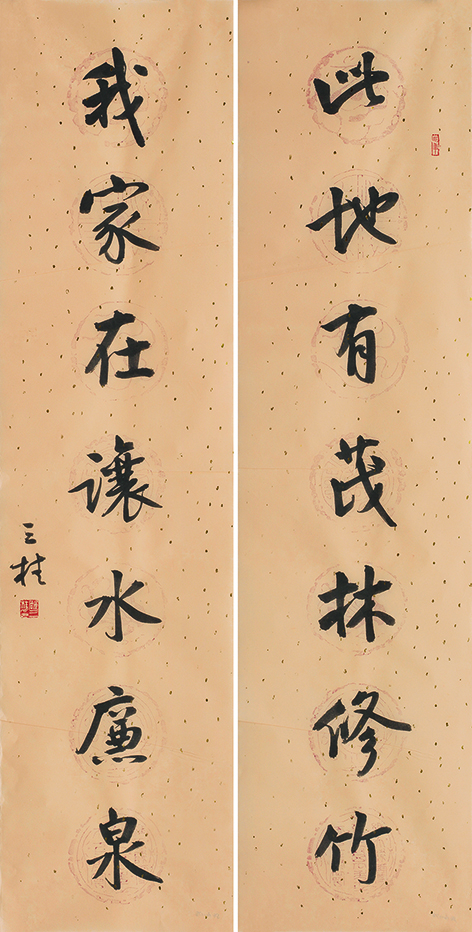 此地有茂林修竹
我家在讓水廉泉
三桂